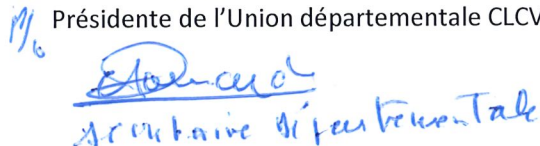 P/o Présidente de l'Union départementale CLCV
secrétaire départementale